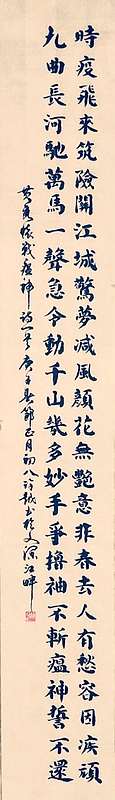 時疫飛來筑險關江城驚夢減風顏花無艷意非春去人有愁容因疾頑
九曲長河馳萬馬一聲急令動千山幾多妙手爭擼袖不斬瘟神誓不還
戰瘟神詩一首庚子春節正月初八書於江畔